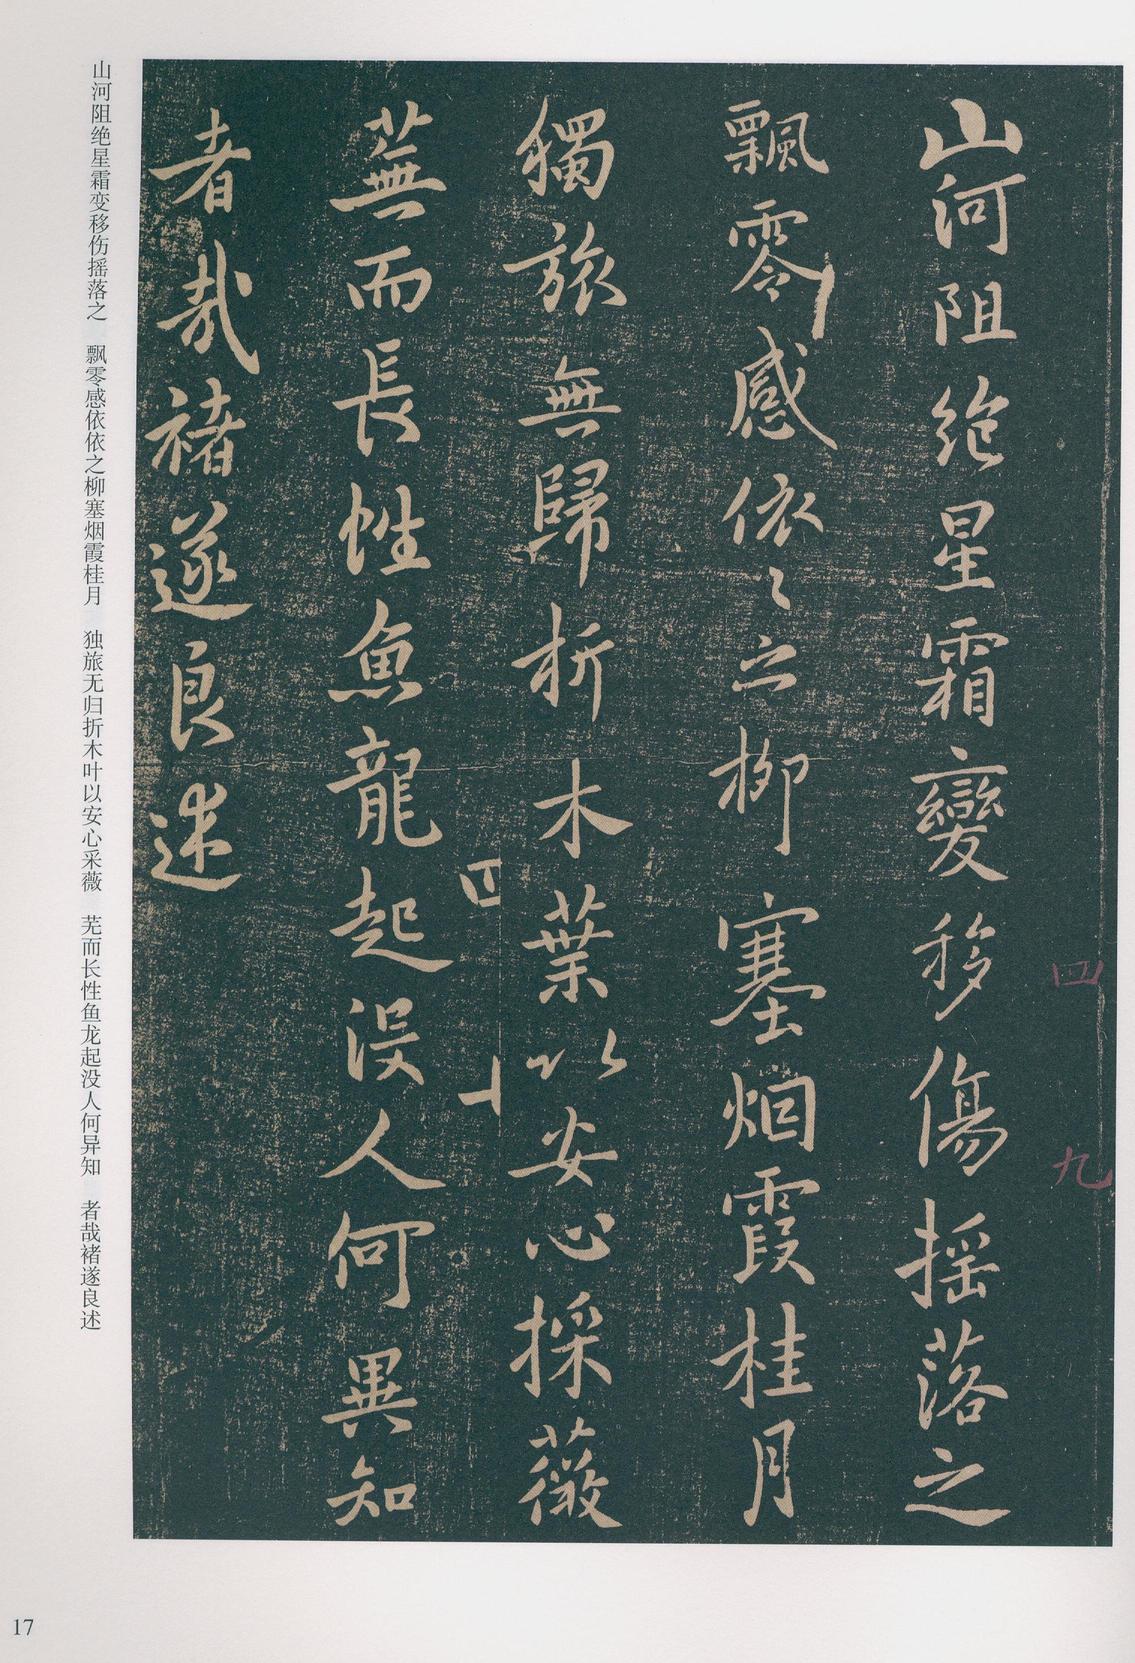 山河阻绝星霜變移傷摇落之
飄零感依〻之柳塞烟霞桂月
獨旅無歸折木葉以安心採薇
蕪而長性魚龍起没人何異知
者哉褚遂良述
四
九
山河阻绝星霜变移伤摇落之 飘零感依依之柳塞烟霞桂月 独旅无归折木叶以安心采薇 芜而长性鱼龙起没人何异知 者哉褚遂良述
17